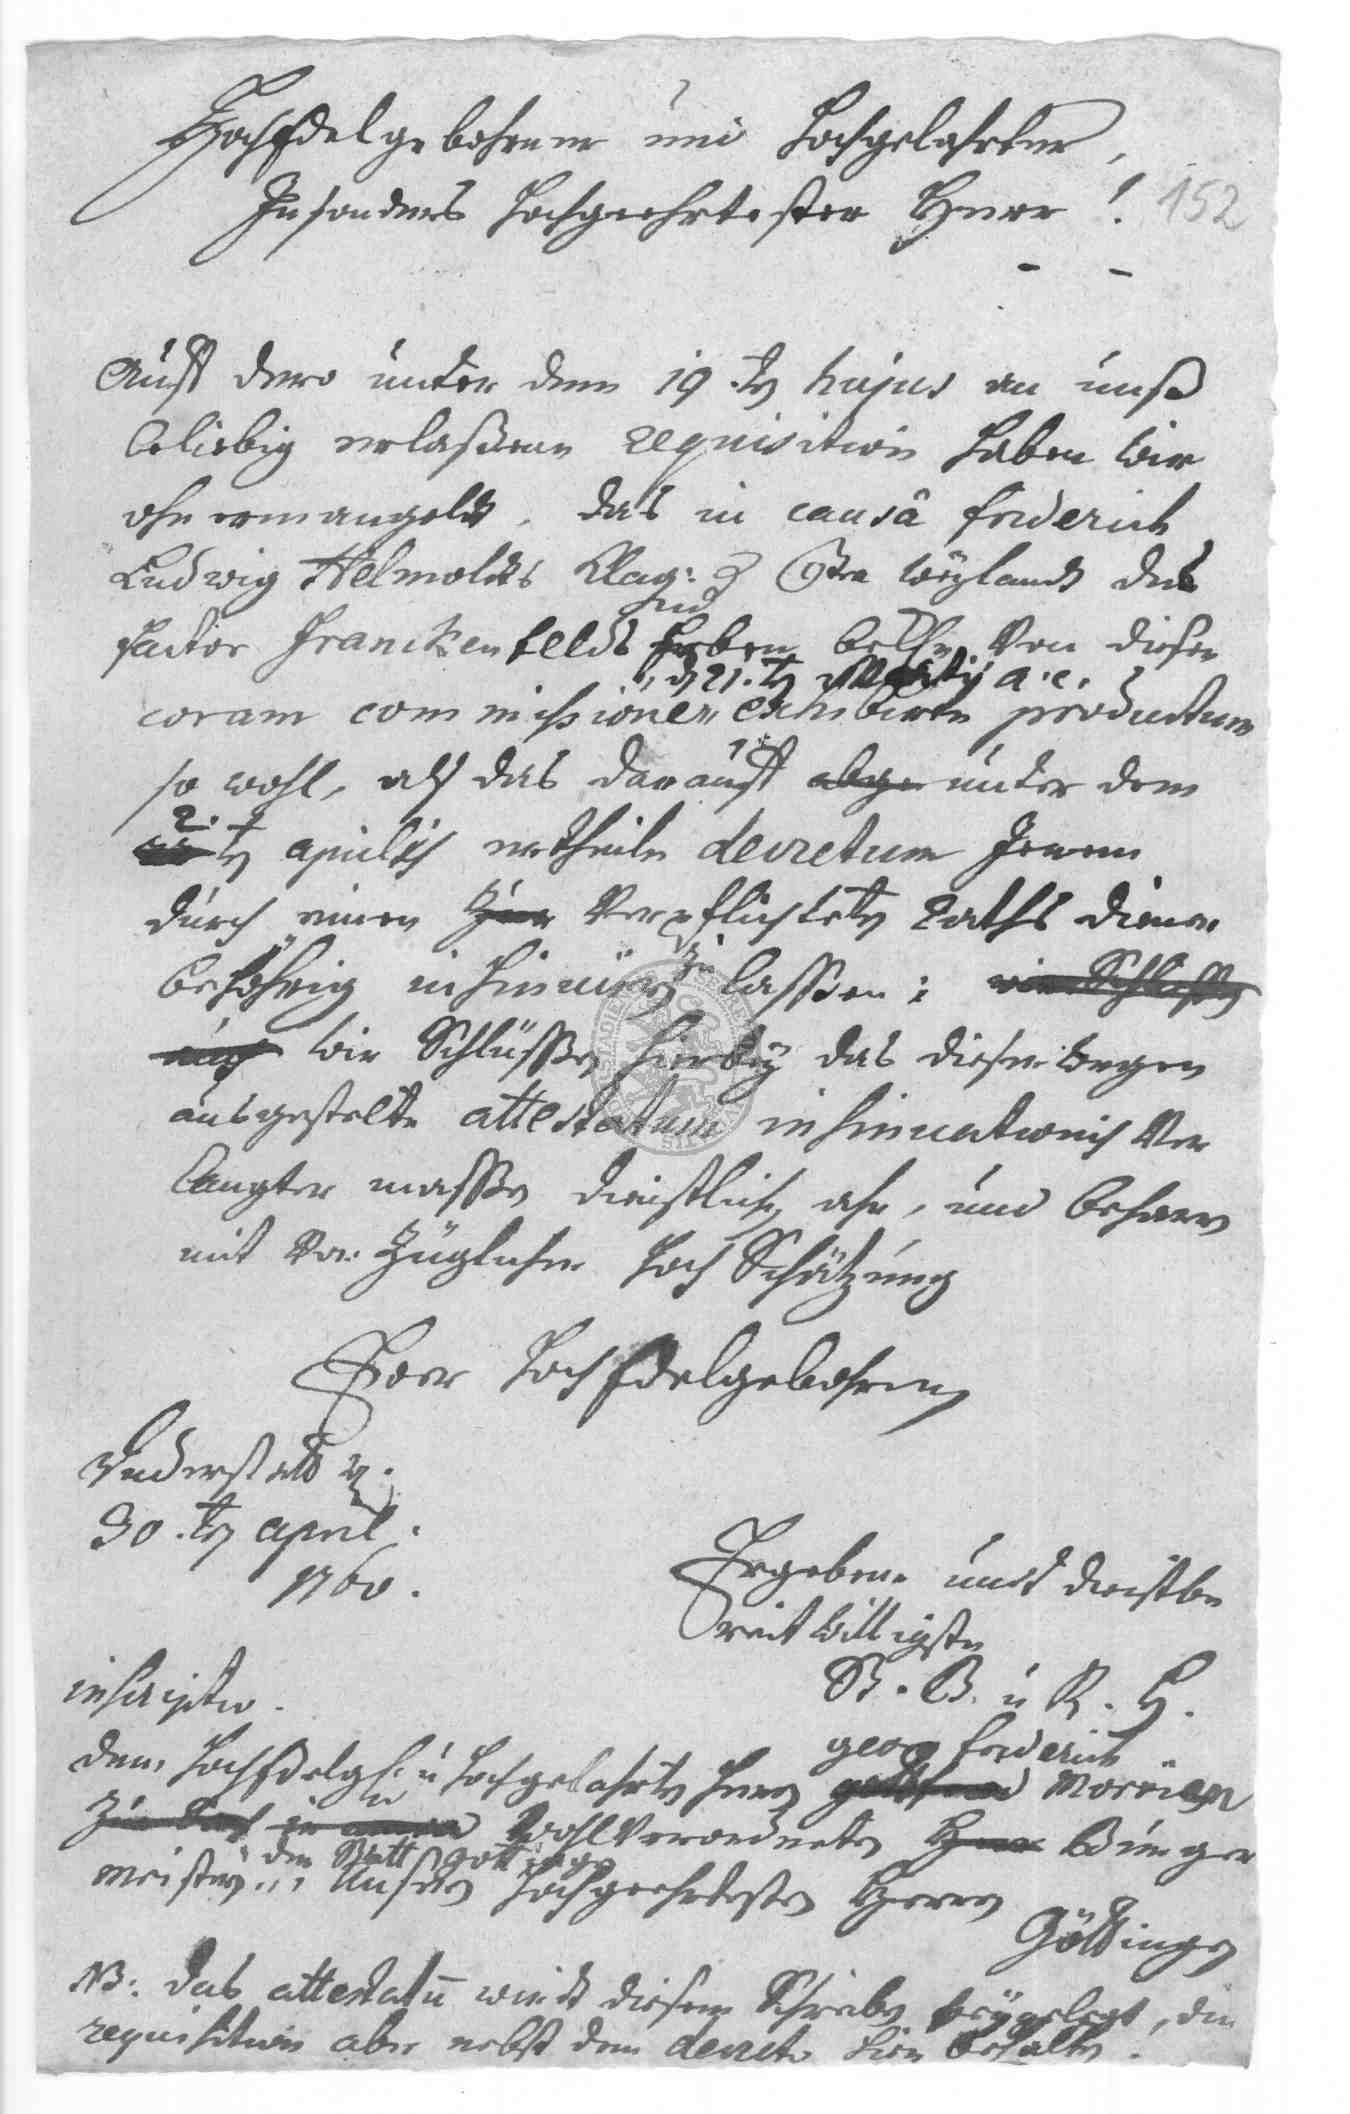 HochEdelgebohrner und Hochgelahrter,
Insonders Hochgeehrtester Herr!
152
Auff dero unter dem 19.ten hujus an unß
beliebig erlaßene requisition haben wir
ohnermangelt, das in causâ friderich
Ludwig Helmolds Klag: Ctra weylandt des
factor Franckenfelds Erben von diesen
d 21.ten Martij a. c.
coram commissione exhibirte productum
so wohl, als das darauff unter dem
2.
ten aprilis ertheilte decretum Jenem
durch einen Verpflichteten Raths diener
zu
behörig insinuiren lassen;
wir Schlüssen hierbey das dieserwegen
ausgestelte attestatum insinuationis Ver
langter massen dienstlich ahn, und beharren
mit Vorzüglicher HochSchätzung
Ewer HochEdelgebohren
Duderstadt d.
30.ten april.
1760.
Ergebene undt dienstbe
reitwilligste
B. u R. H.
inscriptio.
georg friderich
dem HochEdelgb. u Hochgelahrten Herrn Morrien
Wohlverordneten Bürger
der Statt gottingen
meistern Hochgeehrtesten Herrn
Göttingen
NB: das attestatū wirdt diesem Schreiben beygelegt, die
requisition aber nebst dem decreto hier behalten.